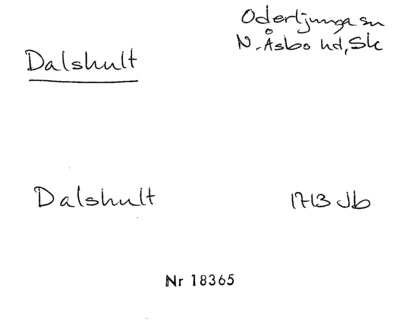 Dalshult
Oderljunga sn
N. Åsbo hd, Sk
Dalshult
1713 Jb
Nr 18365